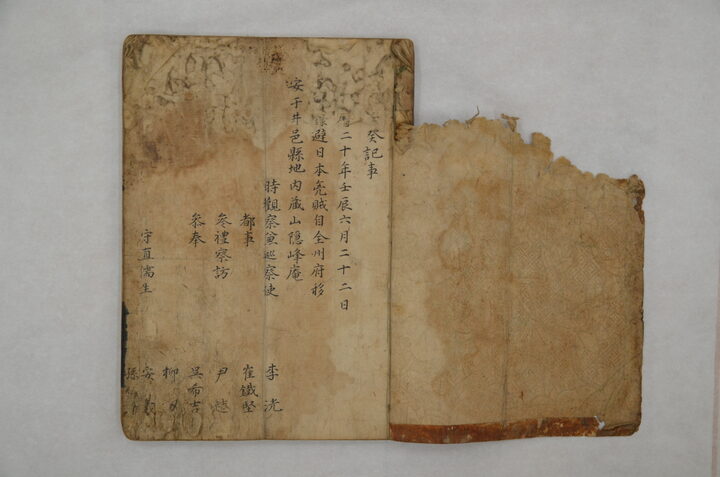 癸記事
二十年壬辰六月二十二日
避日本兇賊自全州府移
安于井邑縣地內藏山隱峰庵
時觀察兼巡察使 李洸
都事 崔鐵堅
叅禮察訪 尹
叅奉 吳希吉
柳
守直儒生 安
孫